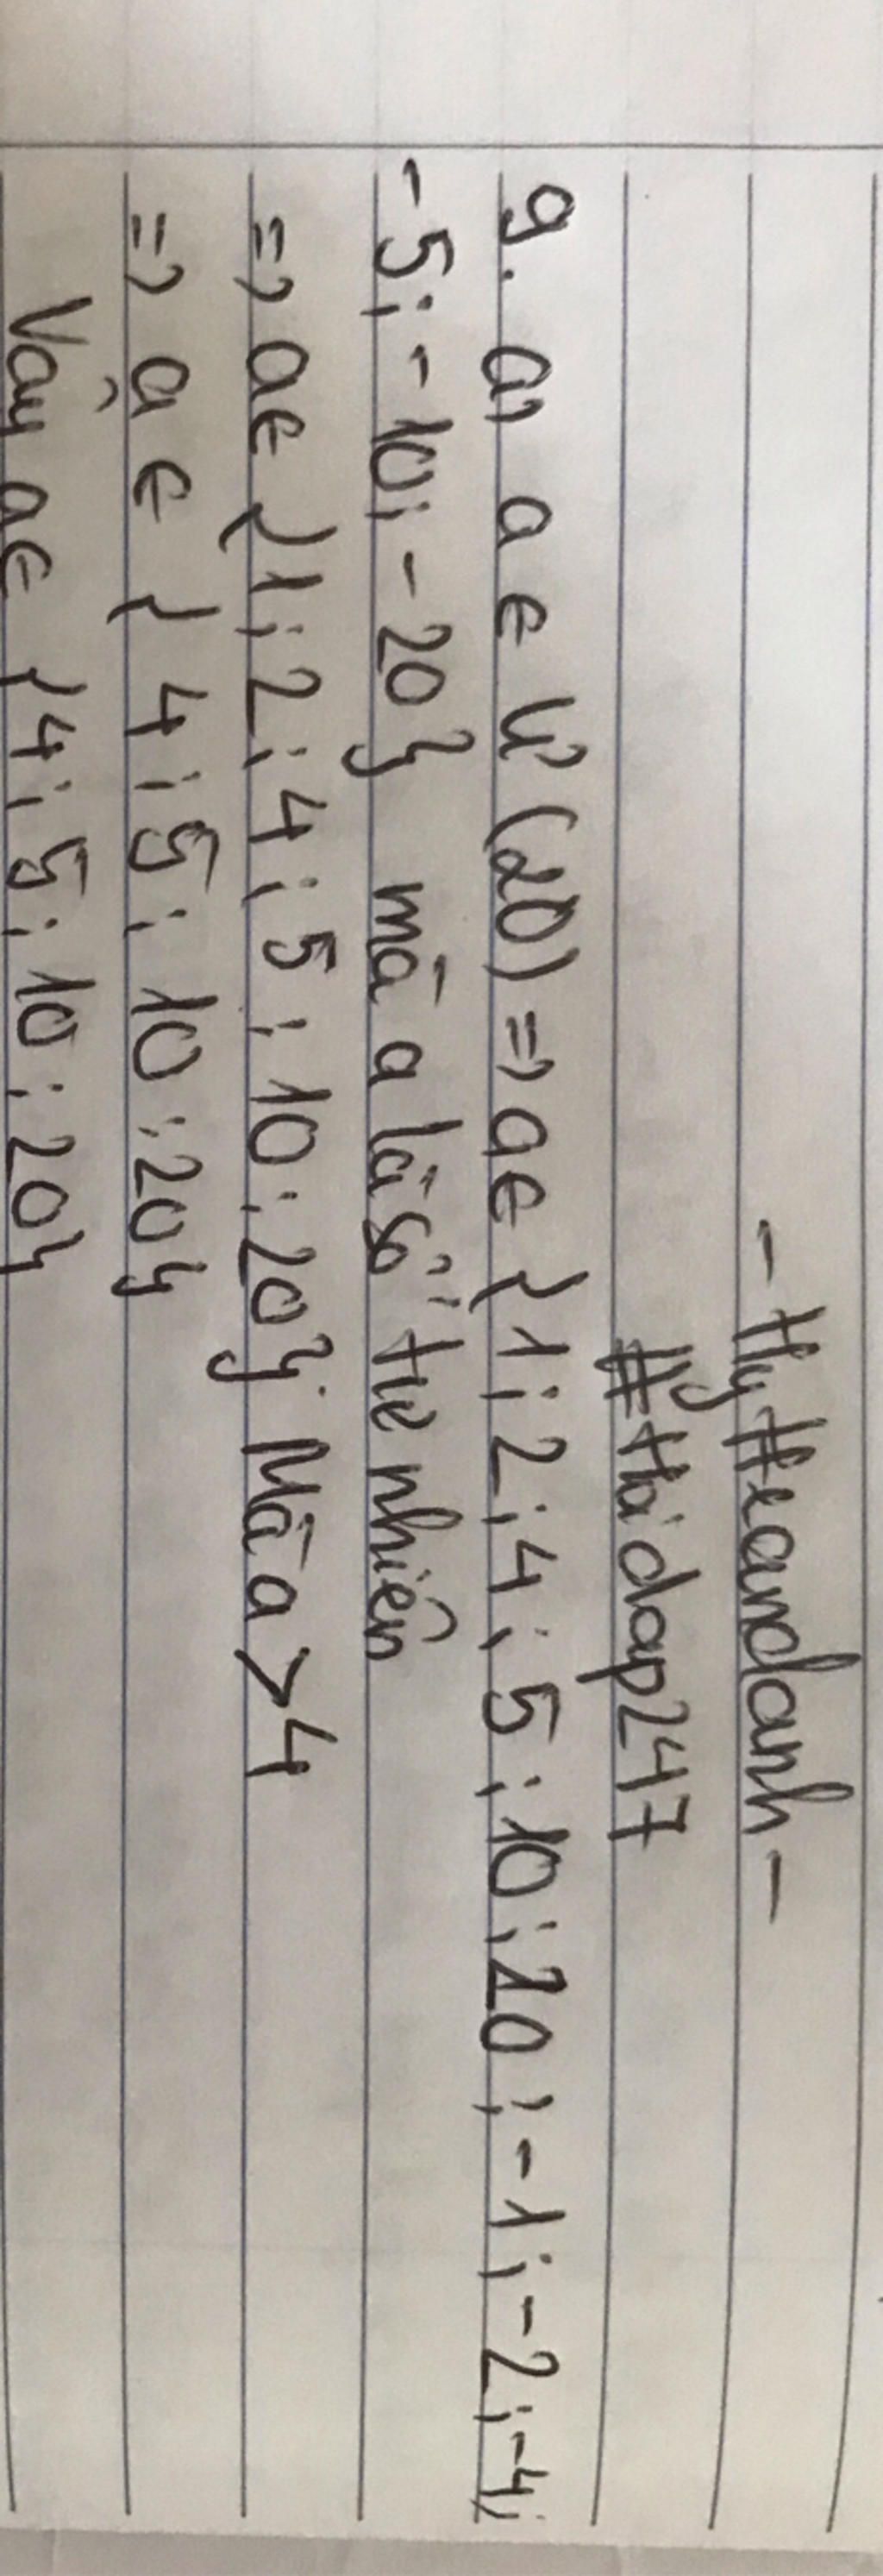 - HyHeandanh -
#Hoidap247
9. a, a ∈ Ư(20) => a ∈ {1; 2; 4; 5; 10; 20; -1; -2; -4;
-5; -10; -20} mà a là số tự nhiên
=> a ∈ {1; 2; 4; 5; 10; 20}. Mà a > 4
=> a ∈ {4; 5; 10; 20}
Vậy a ∈ {4; 5; 10; 20}